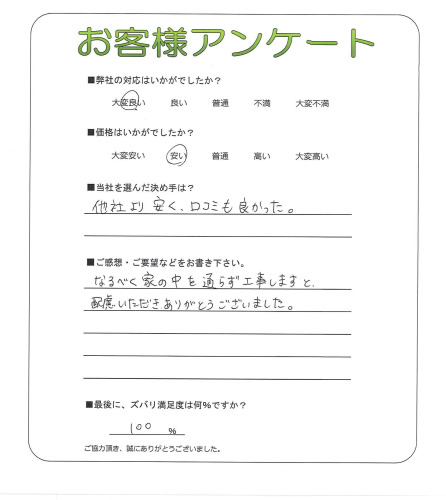 お客様アンケート
■弊社の対応はいかがでしたか？
大変良い 良い 普通 不満 大変不満
■価格はいかがでしたか？
大変安い 安い 普通 高い 大変高い
■当社を選んだ決め手は？
他社より安く、口コミも良かった。
■ご感想・ご要望などをお書き下さい。
なるべく家の中を通らず工事しますと、
配慮いただきありがとうございました。
■最後に、ズバリ満足度は何％ですか？
100 ％
ご協力頂き、誠にありがとうございました。